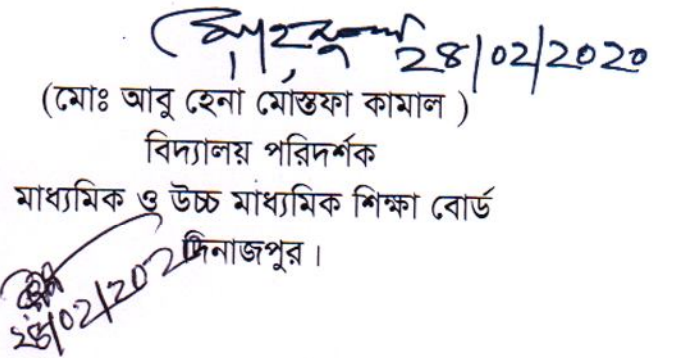 28/02/2020
(মোঃ আবু হেনা মোস্তফা কামাল )
বিদ্যালয় পরিদর্শক
মাধ্যমিক ও উচ্চ মাধ্যমিক শিক্ষা বোর্ড
দিনাজপুর।